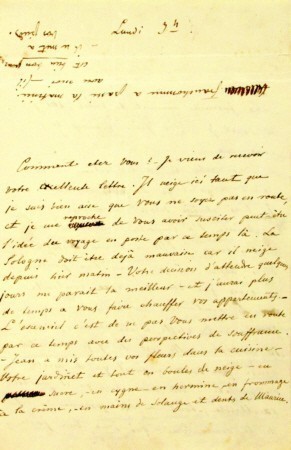 Lundi 9h
Comment etes vous ? - Je viens de recevoir
votre excellente lettre. Il neige ici tant que
je suis bien aise que vous ne soyez pas en route,
et je me reproche de vous avoir suscité peut être
l'idée du voyage en poste par ce temps là. La
Sologne doit être déjà mauvaise car il neige
depuis hier matin - Votre decision d'attendre quelques
jours me parait la meilleure - et j'aurai plus
de temps a vous faire chauffer vos appartements.-
L'essentiel c'est de ne pas vous mettre en route
par ce temps avec des perspectives de souffrance.
- Jean a mis toutes vos fleurs dans la cuisine -
Votre jardinet est tout en boules de neige - en
sucre, en cygne - en hermine, en fromage
à la crême, en mains de Solange et dents de Maurice.